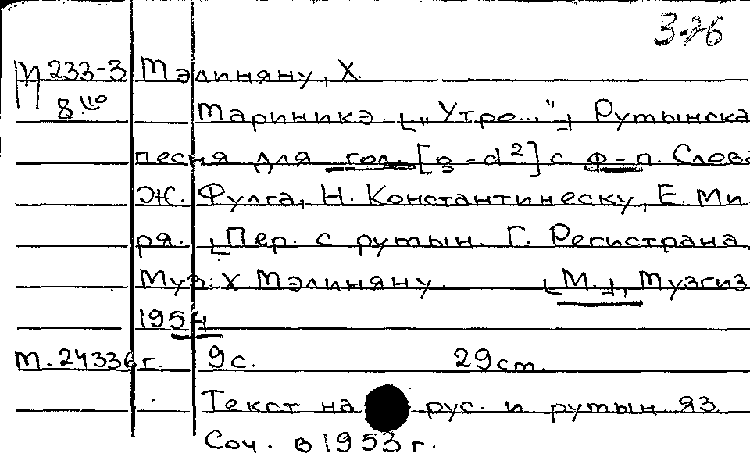 376
М 233-3 Мэлиняну, Х
8° Маринике [„Утро..."] Рутынска
песня для гол. [g-d²] с ф-п. Слова
Ж. Фулга, Н. Константинеску, Е. Ми
ря. [Пер. с рутын. Г. Регистрана
Муз. Х Мэлиняну. [М.], Музгиз
1954
М. 24336 г. 9 с. 29 см.
Текст на рус. и рутын яз.
Соч. в 1953 г.